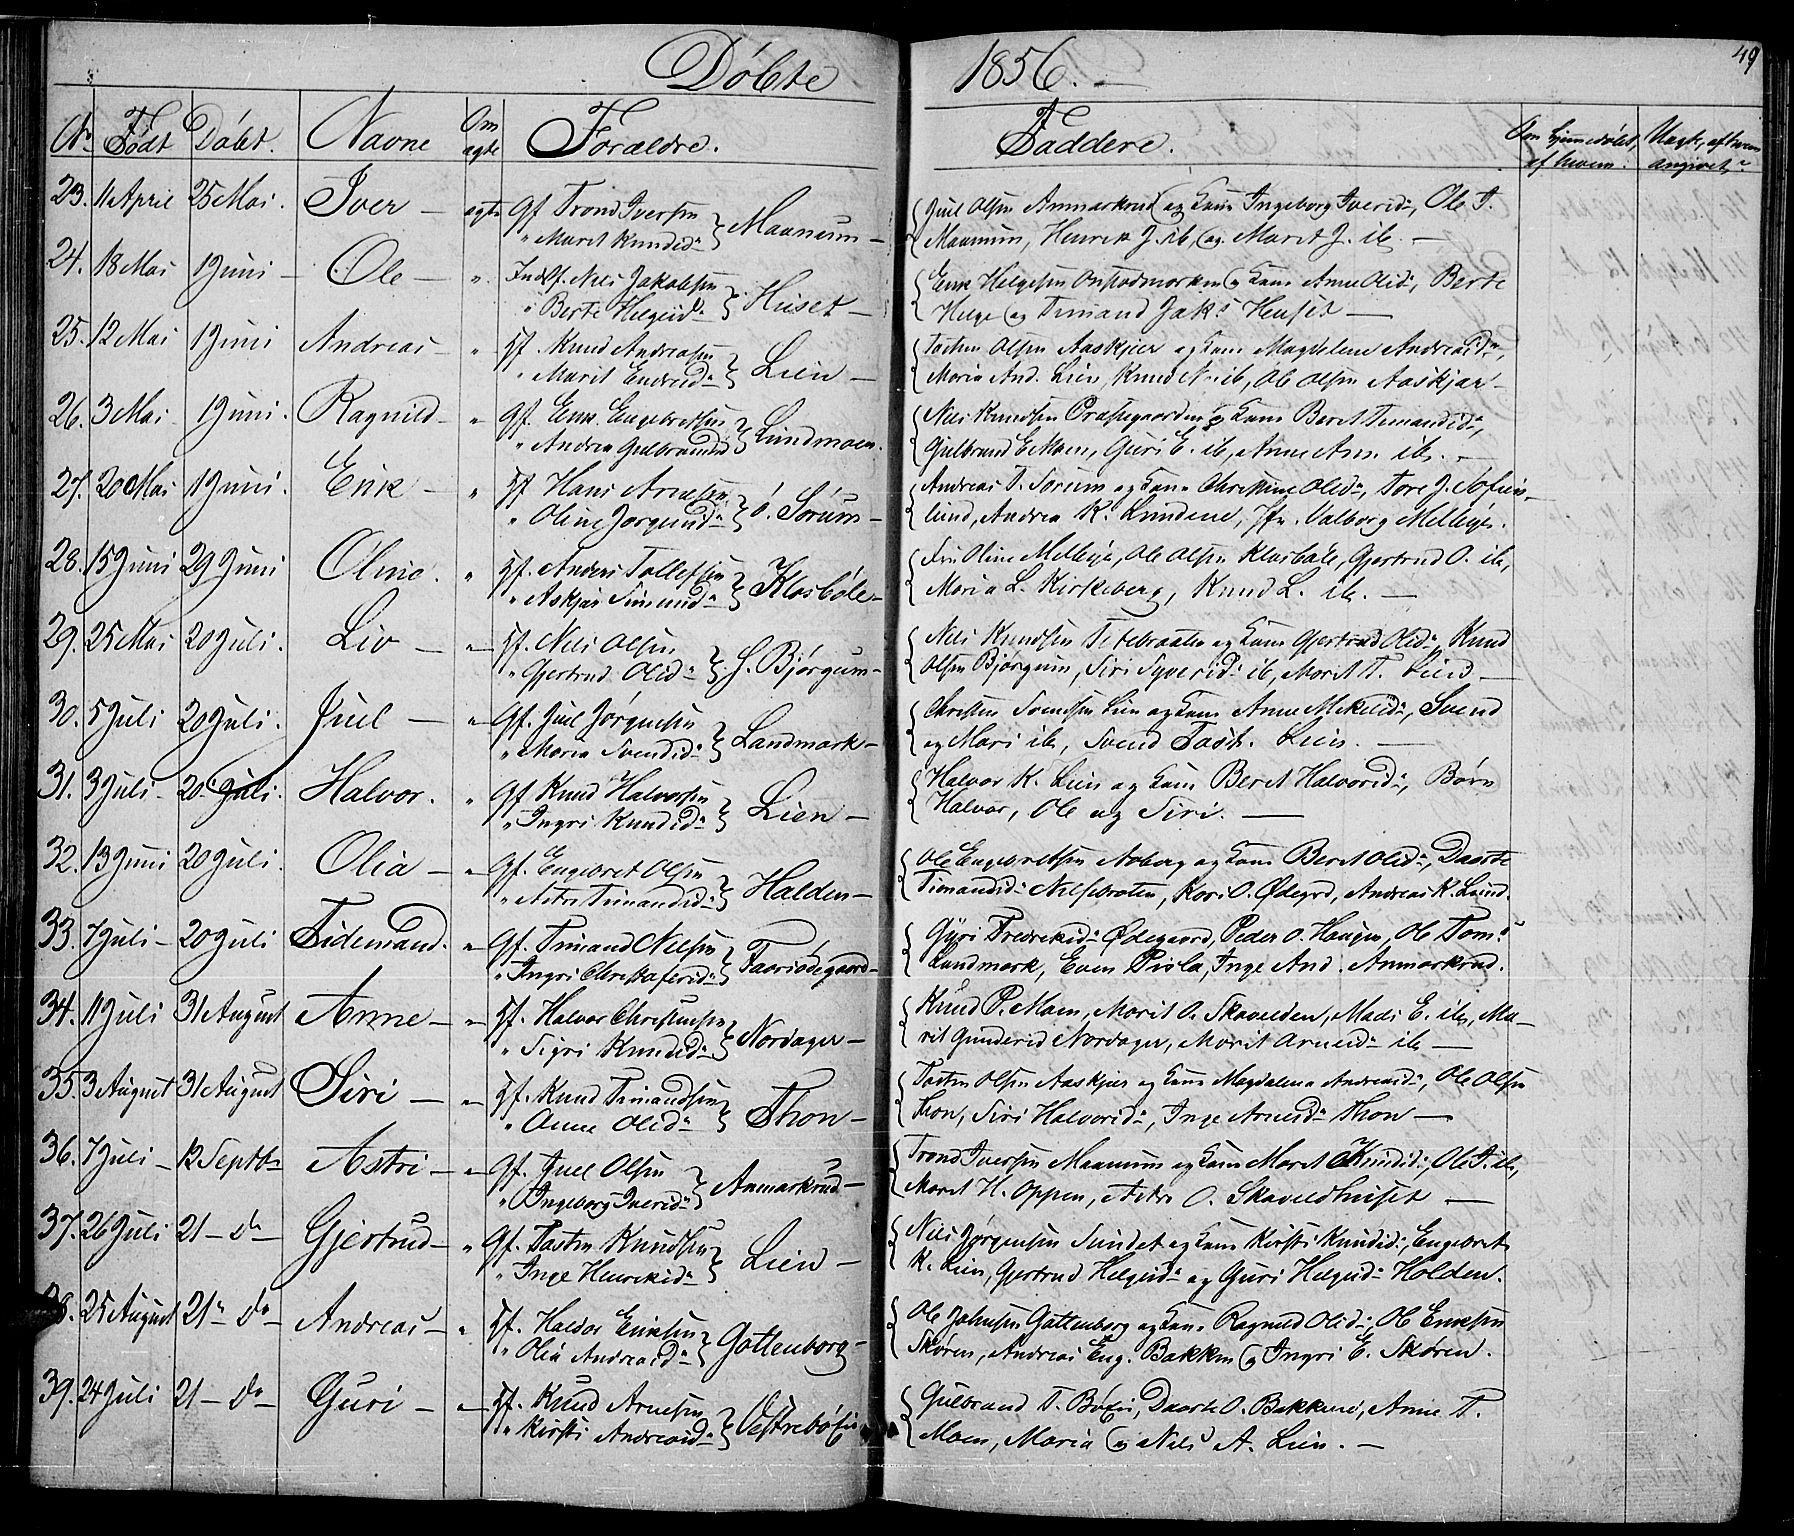 Döbte 1856. 49
No Födt Döbt. Navne Om ægte Forældre. Faddere. Om hjemmedöbt, af hvem. Uægte, af hvem angivet.
23. 11 April 25 Mai. Iver — ægte Gf. Trond Iversen Maanum —
" Marit Knudsd.
Juel Olsen Anmarkrud og Kone Ingeborg Iversd., Ole T.
Maanum, Henrik J. ib, og Maret J. ib. —
24. 18 Mai 1 Juni — Ole — " Inds. Gf. Nels Jakobsen Huset —
" Berte Helgesd.
Erik Helgesen og Kone Anne Olsd., Berte
Helge og Timand Jaks. Huset —
25. 12 Mai 1 Juni Andreas — " Gf. Knud Andreasen Lien —
" Marit Endresd.
Tosten Olsen Aaskjær og Kone Magdelene Andreasd.,
Maria And. Lien, Knud N. ib, Ole Olsen Aaskjær —
26. 3 Mai 1 Juni. Ragnild — " Gf. Erik Engebretsen Lundmoen.
" Andrea Gulbrandsd.
Nils Knudsen Præstegaarden og Kone Beret Timandsd.,
Gulbrand E. Moen, Guri E. ib, Anne Arn. ib. —
27. 20 Mai 1 Juni. Erik — " Gf. Hans Arnesen ö. Sörum —
" Oline Jörgensd.
Andreas T. Sörum og Kone Christine Olsd., Tore J. Sofien-
lund, Andrea K. Lundene, Jfr. Valborg Mellbye.
28. 15 Juni 29 Juni Oline. " Gf. Anders Tollefsen Klosböle —
" Askjær Simensd.
Fru Oline Mellbye, Ole Olsen Klosböle, Gjertrud O. ib,
Maria L. Kirkeberg, Knud L. ib. —
29. 25 Mai 20 Juli. Liv — " Gf. Nels Olsen S. Bjørgum —
" Gjertrud Olsd.
Nels Knudsen Titebraaten og Kone Gjertrud Olsd., Knud
Olsen Bjørgum, Siri Syversd. ib, Marit T. Liend —
30. 5 Juli 20 Juli. Juel — " Gf. Juel Jörgensen Landmark —
" Maria Svendsd.
Christen Svendsen Lien og Kone Anne Mikelsd., Svend
og Mari ib, Svend Tost. Lien. —
31. 3 Juli — 20. Juli. Halvor. " Gf Knud Halvorsen Lien —
" Ingri Knudsd.
Halvor K. Lien og Kone Beret Halvorsd., Børn
Halvor, Ole og Siri. —
32. 13 Juni 20 Juli. Olia — " Gf. Engebret Olsen Halden —
" Astri Timandsd.
Ole Engebretsen Aaberg og Kone Beret Olsd., Daarte
Timandsd. Nilsebraten, Kari O. Ødegrd, Andreas K. Lund.
33. 7 Juli — 20 Juli Tidemand. " Gf. Timand Nelsen Faariödegaard —
" Ingri Christofersd.
Gyri Fredriksd. Ødegaard, Peder O. Haugen, Ole Toms.
Landmark, Even Pisla, Inge And. Anmarkrud.
34. 11 Juli 31 August Anne — " Gf. Halvor Christensen Nordager —
" Sigri Knudsd.
Knud P. Moen, Marit O. Skavelden, Mads E. ib, Ma-
rit Gundersd Nordager, Marit Arnesd. ib —
35. 3 August 31 August Siri — " Gf. Knud Timandsen Thon —
" Anne Olsd.
Tosten Olsen Aaskjær og Kone Magdalena Andreasd., Ole Olsen
Thon, Siri Halvorsd., Inge Arnesd. Thon —
36. 7 Juli — 12 Septbr Astri — " Gf. Juel Olsen Anmarkrud —
" Ingeborg Iversd.
Trond Iversen Maanum og Kone Maret Knudsd., Ole T. ib,
Maret H. Oppen, Astri O. Skaveldhuset —
37. 26 Juli 21 — do — Gjertrud — " Gf. Tosten Knudsen Lien —
" Inge Henriksd.
Nils Jörgensen Sundet og Kone Kirsti Knudsd., Engebret
K. Lien, Gjertrud Helgesd. og Guri Helgesd. Holden.
38. 25 August 21 — do Andreas — " Gf. Haldor Eriksen Gottenborg —
" Olia Andreasd.
Ole Johnsen Gottenborg og Kone Ragnild Olsd., Ole Eriksen
Skören, Andreas Eng. Bakken og Ingri E. Skören.
39. 24 Juli 21 — do — Guri — " Gf. Knud Arnesen Vestreböen
" Kirsti Andreasd.
Gulbrand T. Böen, Daarte O. Bakkene, Anne T.
Moen, Maria og Nels A. Lien. —